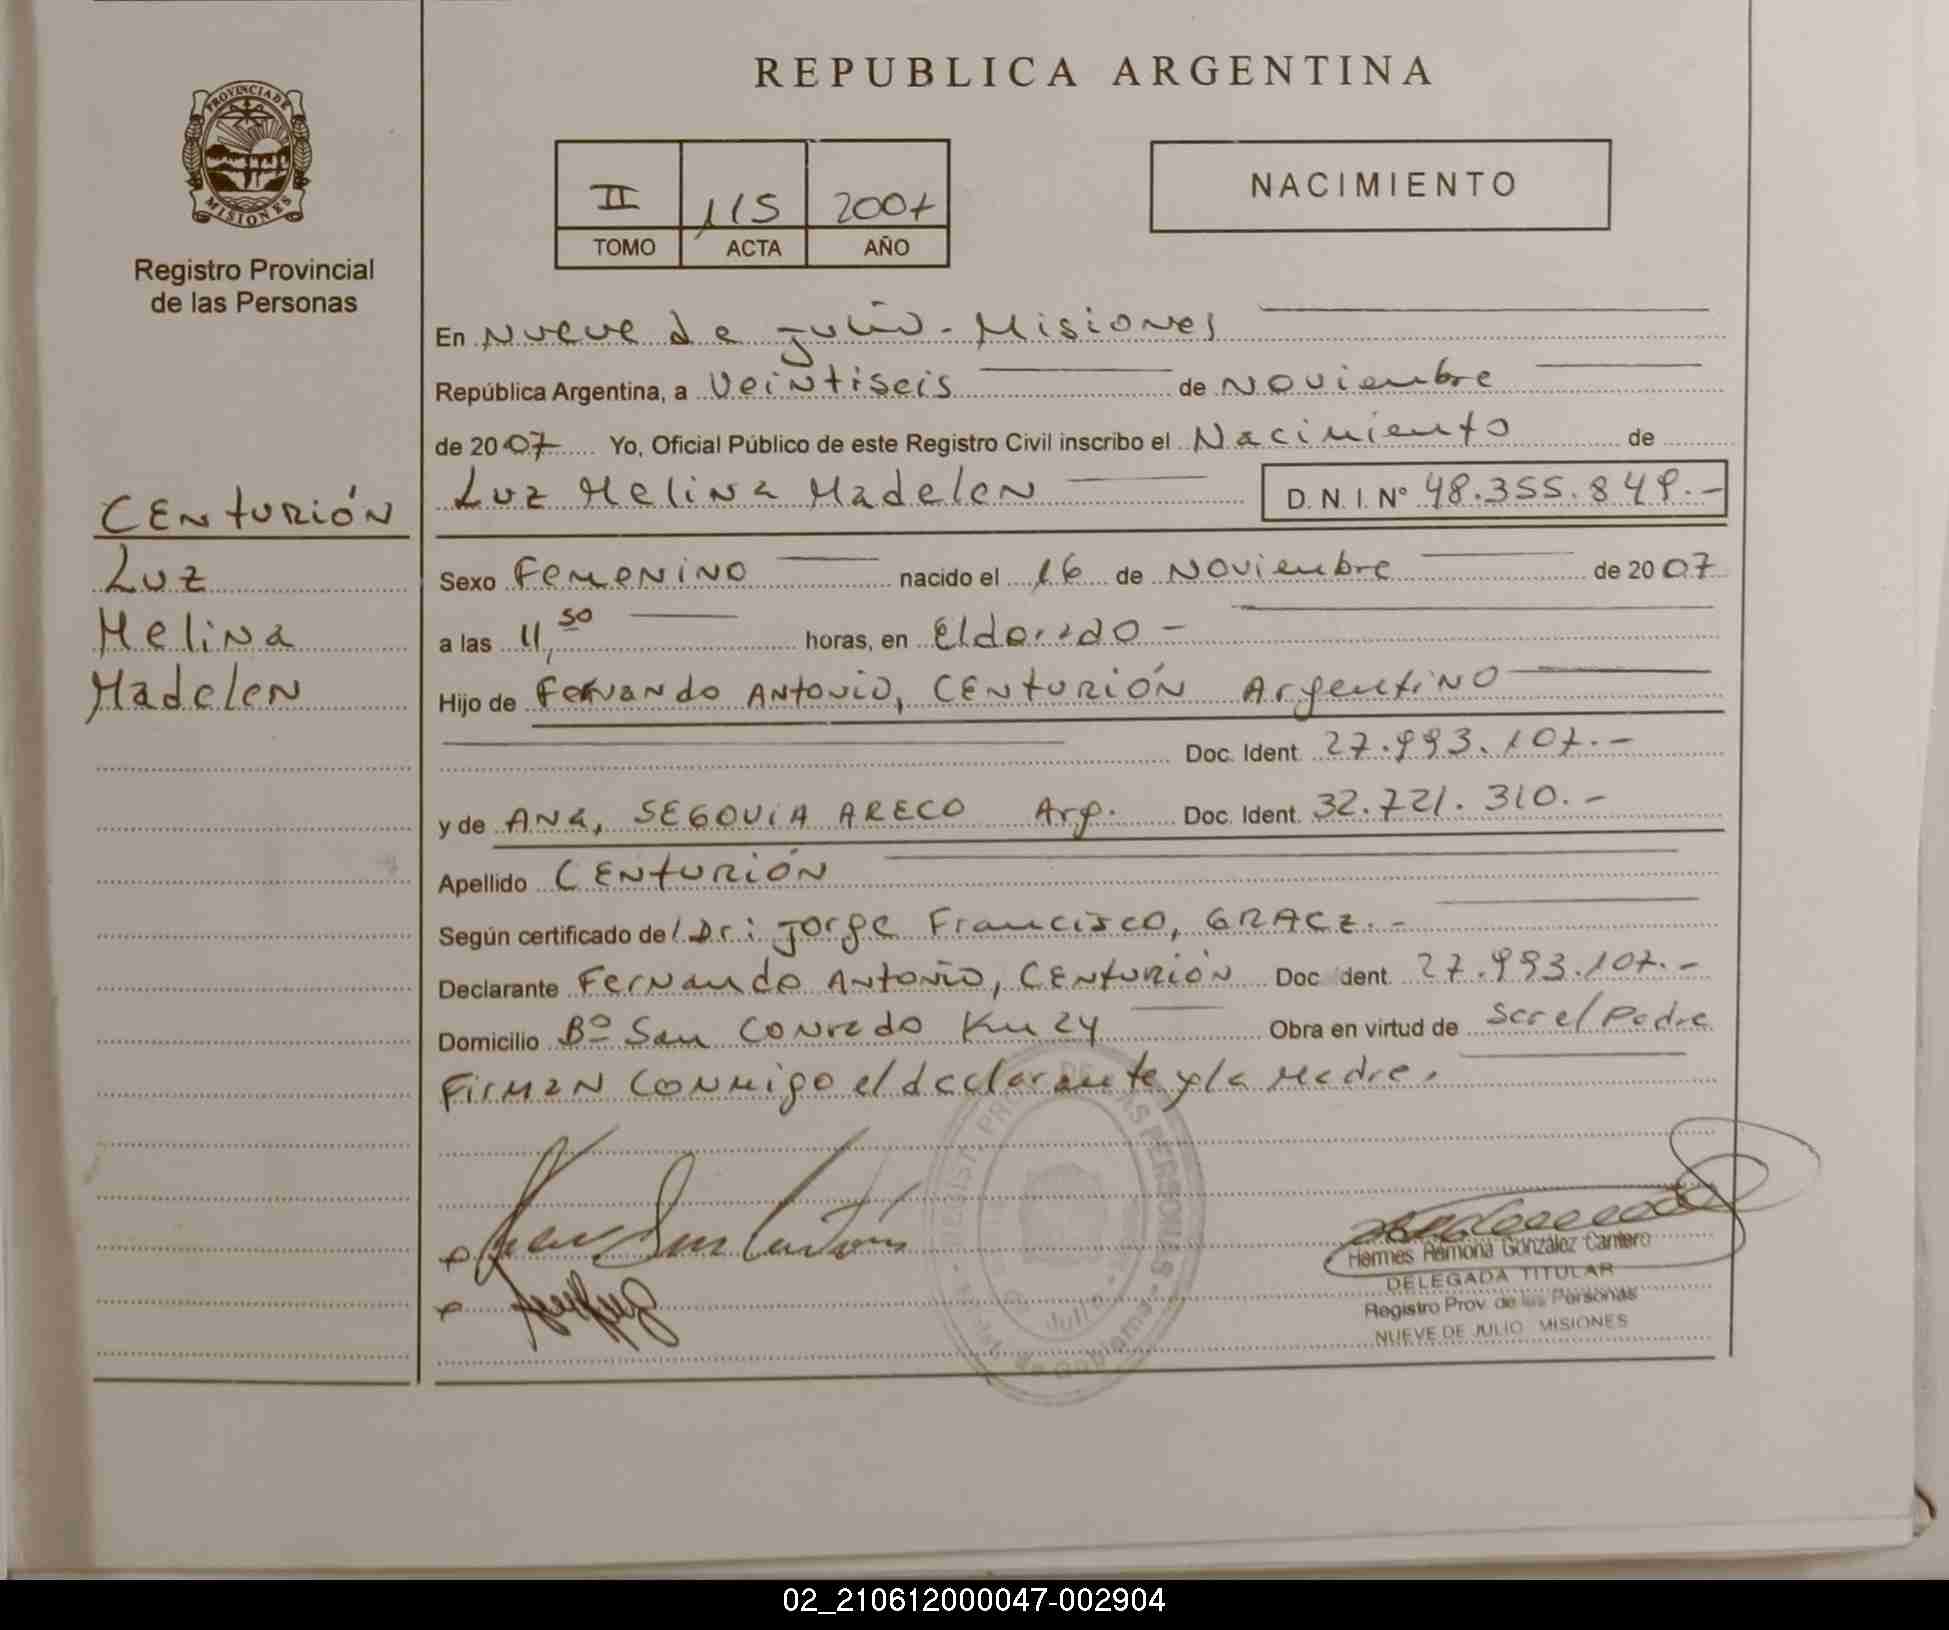 REPUBLICA ARGENTINA
PROVINCIA DE MISIONES
Registro Provincial
de las Personas
II 115 2007
TOMO ACTA AÑO
NACIMIENTO
CENTURIÓN
Luz
Melina
Madelen
En Nueve de Julio - Misiones
República Argentina, a Veintiseis de Noviembre
de 2007 Yo, Oficial Público de este Registro Civil inscribo el Nacimiento de
Luz Melina Madelen D.N.I. Nº 48.355.849.-
Sexo Femenino nacido el 16 de Noviembre de 2007
a las 11,50 horas, en Eldorado -
Hijo de Fernando Antonio, CENTURIÓN Argentino
Doc. Ident. 27.993.107.-
y de Ana, SEGOVIA ARECO Arg. Doc. Ident. 32.721.310.-
Apellido CENTURIÓN
Según certificado de/ Dr: Jorge Francisco, GRACZ.-
Declarante Fernando Antonio, CENTURIÓN Doc Ident. 27.993.107.-
Domicilio Bº San Conrado Km 24 Obra en virtud de Ser el Padre
Firman conmigo el declarante y la Madre.
Hermes Ramona González Cantero
DELEGADA TITULAR
Registro Prov. de las Personas
NUEVE DE JULIO MISIONES
02_210612000047-002904